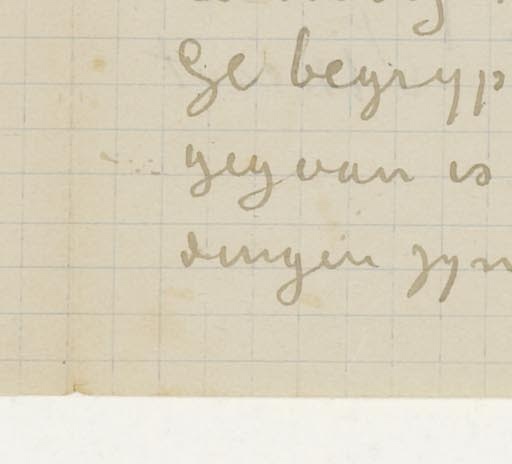 Ge begryp
van is
dingen zyn